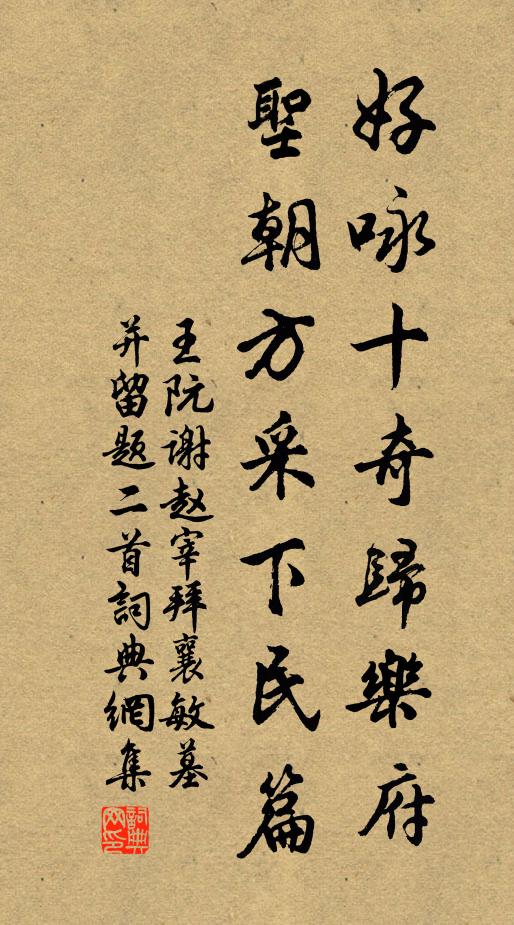 好咏十奇歸樂府
聖朝方采下民篇
王阮谢赵宰拜襄敏墓
并留题二首詞典網集
詞典
网印